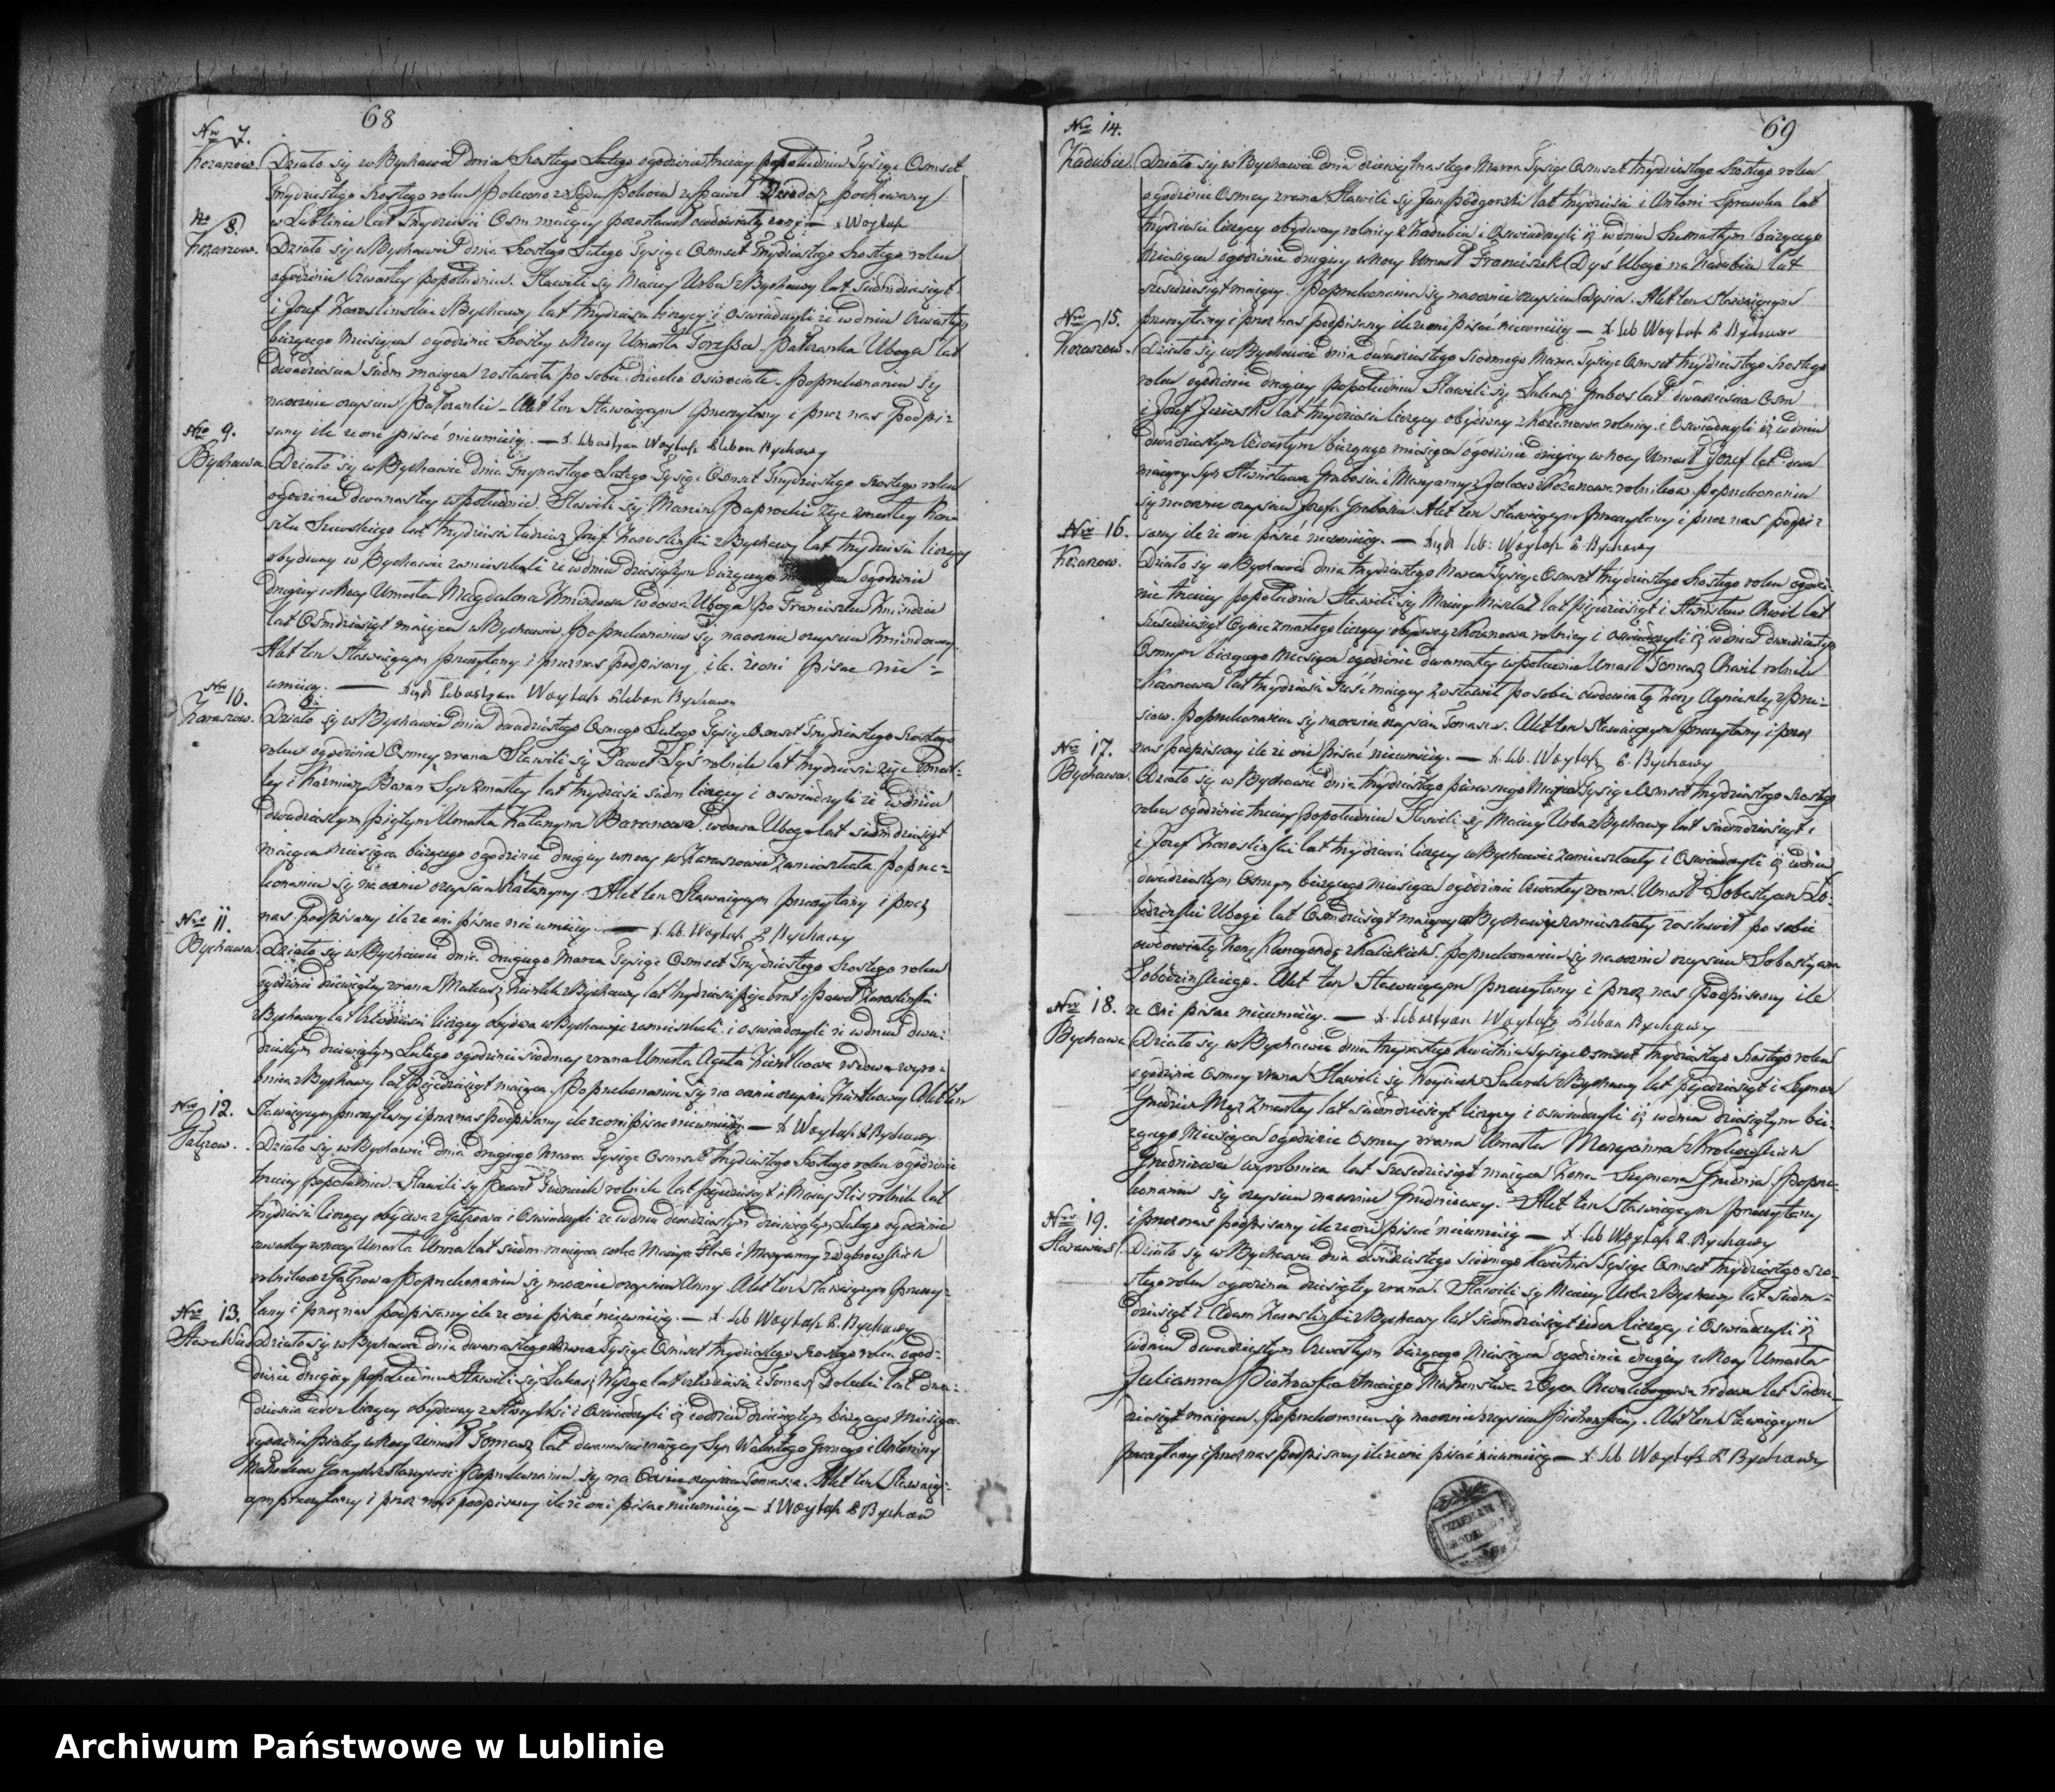 68
Nro 7.
Kozarzow. Działo się w Bychawie dnia Szostego Lutego ogodzinie trzeciy popołudniu Tysiąc Osmset
Trzydziestego Szostego roku Polecono z Sądu Pokoiu z Paweł pochowany
w Lublinie lat Trzydzieści Osm maiący pozostawił owdowiałą żonę — x Woytuh
Nro 8.
Kozarzow. Działo się w Bychawie dnia Szostego Lutego Tysiąc Osmset Trzydziestego Szostego roku
ogodzinie Czwartey popołudniu. Stawili się Maciey Urba z Bychawy lat siedmdziesiąt
i Jozef z Bychawy lat trzydzieści liczący i oświadczyli że w dniu Czwartym
bieżącego Miesiąca ogodzinie Szostey w Nocy Umarła Teressa Uboga lat
Dwadzieścia siedm maiąca zostawiła po sobie dziecko osierociałe. Poprzekonaniu się
naocznie o zejsciu Akt ten Stawaiącym przeczytany i przez nas podpi-
sany ile że oni pisać nieumieią. — X. Sebastyan Woytuh Pleban Bychawy
Nro 9.
Bychawa. Działo się w Bychawie dnia Trzynastego Lutego Tysiąc Osmset Trzydziestego Szostego roku
ogodzinie dwunastey w południe. Stawili się Marcin Paprocki Zięć zmarłey
lat trzydzieści tudzież Jozef z Bychawy lat trzydzieści liczący
obydway w Bychawie zamieszkali że w dniu dziesiątym bieżącego ogodzinie
Drugiey w Nocy Umarła Magdalena wdowa Uboga po Franciszku
lat Osmdziesiąt maiąca w Bychawie, poprzekonaniu się naocznie o zejsciu
Akt ten Stawaiącym przeczytany i przez nas podpisany ile żeoni pisać nie-
umieią. — Xiądz Sebastyan Woytuh Pleban Bychawy
Nro 10.
Zaraszow. Działo się w Bychawie dnia dwudziestego Osmego Lutego Tysiąc Osmset Trzydziestego Szostego
roku ogodzinie Osmey zrana Stawili się Paweł Łyś rolnik lat trzydzieści Zięć Zmar-
łey i Kazmierz Baran Syn zmarłey lat trzydzieści siedm liczący i oświadczyli że w dniu
dwudziestym piątym Umarła Katarzyna Baranowa, wdowa Uboga lat siedmdziesiąt
maiąca Miesiąca bieżącego ogodzinie drugiey w nocy w Zaraszowie Zamieszkała. Poprze-
konaniu się naocznie o zejsciu Katarzyny. Akt ten Stawaiącym przeczytany i przez
nas podpisany ile że oni pisać nieumieią. — X. Seb. Woytuh P Bychawy
Nro 11.
Bychawa. Działo się w Bychawie dnia drugiego Marca Tysiąc Osmset Trzydziestego Szostego roku
ogodzinie dziewiątey zrana Mateusz z Bychawy lat trzydzieści brat i Paweł
z Bychawy lat liczący obydwa w Bychawie zamieszkali i oświadczyli że w dniu dwu-
dziestym dziewiątym Lutego ogodzinie siodmey zrana Umarła Agata wdowa wyro-
bnica z Bychawy lat Pięćdziesiąt maiąca. Poprzekonaniu się na ocznie o zejsciu Akt ten
Stawaiącym przeczytany i przez nas podpisany ile że oni pisać nieumieią — X Woytuh P. Bychawy
Nro 12.
Gałęzow. Działo się w Bychawie dnia drugiego Marca Tysiąc Osmset trzydziestego Szostego roku ogodzinie
trzeciey popołudniu. Stawili się Paweł rolnik lat pięćdziesiąt i Maciey rolnik lat
trzydzieści liczący obydwa z Gałęzowa i Oświadczyli że w dniu dwudziestym dziewiątym Lutego ogodzinie
czwartey w nocy Umarła Anna lat siedm maiąca corka Macieia i Maryanny z Dąbrowskich
rolników z Gałęzowa Poprzekonaniu się naocznie o zejsciu Anny. Akt ten Stawaiącym przeczy-
tany i przez nas podpisany ile że oni pisać nieumieią. — X. Seb Woytuh P. Bychawy
Nro 13.
Działo się w Bychawie dnia dwunastego Marca Tysiąc Osmset trzydziestego Szostego roku ogod-
zinie drugiey popołudniu Stawili się Łukasz lat i Tomasz lat dwa-
dzieścia liczący obydway z i Oświadczyli iż w dniu dziesiątym bieżącego Miesiąca
ogodzinie piątey w Nocy Umarł Tomasz lat dwanaście maiący Syn Walentego i Antoniny
Małżonkow Poprzekonaniu się na Ocznie o zejsciu Tomasza. Akt ten Stawaią-
cym przeczytany i przez nas podpisany ile że oni pisać nieumieią — X Woytuh P Bychaw
69
Nro 14.
Zadubie. Działo się w Bychawie dnia dziewiętnastego Marca Tysiąc Osmset trzydziestego Szostego roku
ogodzinie Osmey zrana Stawili się Jan Podgorski lat trzydzieści i Antoni Sprawka lat
trzydzieści liczący obydway rolnicy z Zadubia i Oświadczyli iż w dniu Szesnastym bieżącego
Miesiąca ogodzinie drugiey w Nocy Umarł Franciszek Dys Ubogi na Zadubiu lat
sześćdziesiąt maiący. Poprzekonaniu się naocznie o zejsciu Dysia. Akt ten Stawaiącym
przeczytany i przez nas podpisany ile że oni pisać nieumieią — X. Seb Woytuh P. Bychawy
Nro 15.
Kozarzow. Działo się w Bychawie dnia dwudziestego siodmego Marca Tysiąc Osmset trzydziestego Szostego
roku ogodzinie drugiey popołudniu Stawili się Łukasz Grabos lat dwadzieścia Osm
i Jozef lat trzydzieści liczący obydway z Kozarzowa rolnicy i Oświadczyli iż w dniu
dwudziestym czwartym bieżącego miesiąca ogodzinie drugiey w Nocy Umarł Jozef lat dwa
maiący Syn Stanisława Grabosia i Maryanny z z Kozarzowa rolnikow. Poprzekonaniu
się naocznie o zejsciu Jozefa Grabosia Akt ten stawaiącym przeczytany i przez nas podpi-
sany ile że oni pisać nieumieią. — Xiądz Seb: Woytuh P. Bychawy
Nro 16.
Kozarzow. Działo się w Bychawie dnia trzydziestego Marca Tysiąc Osmset trzydziestego Szostego roku ogodzi-
nie trzeciey popołudniu Stawili się Maciey lat pięćdziesiąt i Stanisław Chwil lat
sześćdziesiąt Oyciec Zmarłego liczący obydway z Kozarzowa rolnicy i oświadczyli iż w dniu dwudziestym
Osmym bieżącego Miesiąca ogodzinie dwunastey w południe Umarł Tomasz Chwil rolnik
z Kozarzowa lat trzydzieści maiący zostawił po sobie owdowiałą żonę Agnieszkę z
Poprzekonaniu się naocznie o zejsciu Tomasza. Akt ten Stawaiącym przeczytany i przez
nas podpisany ile że oni pisać nieumieią. — X. Seb. Woytuh P. Bychawy
Nro 17.
Bychawa. Działo się w Bychawie dnia trzydziestego pierwszego Marca Tysiąc Osmset trzydziestego Szostego
roku ogodzinie trzeciey popołudniu Stawili się Maciey Urba z Bychawy lat siedmdziesiąt
i Jozef lat trzydzieści liczący w Bychawie zamieszkały i Oświadczyli iż w dniu
dwudziestym Osmym bieżącego Miesiąca ogodzinie czwartey zrana. Umarł Sobestyan So-
bodzinski Ubogi lat Osmdziesiąt maiący w Bychawie zamieszkały zostawił po sobie
owdowiałą żonę z Kalickich. Poprzekonaniu się naocznie o zejsciu Sobestyana
Sobodzinskiego. Akt ten Stawaiącym przeczytany i przez nas podpisany ile
że Oni pisać nieumieią. — X. Sebastyan Woytuh Pleban Bychawy
Nro 18.
Bychawa Działo się w Bychawie dnia trzynastego Kwietnia Tysiąc Osmset trzydziestego Szostego roku
ogodzinie Osmey zrana Stawili się Woyciech z Bychawy lat pięćdziesiąt i Szymon
Grudzień Mąż Zmarłey lat siedmdziesiąt liczący i oświadczyli iż w dniu dziesiątym bie-
żącego Miesiąca ogodzinie Osmey zrana Umarła Maryanna z
Grudniowa wyrobnica lat Sześćdziesiąt maiąca Żona Szymona Grudnia. Poprze-
konaniu się o zejsciu naocznie Grudniowey. Akt ten Stawaiącym przeczytany
i przez nas podpisany ile że oni pisać nieumieią — X Seb Woytuh P. Bychawy
Nro 19.
Działo się w Bychawie dnia dwudziestego siodmego Kwietnia Tysiąc Osmset trzydziestego szo-
stego roku ogodzinie dziesiątey zrana. Stawili się Maciey Urba z Bychawy lat siedm-
dziesiąt i Adam z Bychawy lat siedmdziesiąt ieden liczący i Oświadczyli iż
w dniu dwudziestym Czwartym bieżącego Miesiąca ogodzinie drugiey w Nocy Umarła
Julianna Piotrowska wdowa lat siedm-
dziesiąt maiąca. Poprzekonaniu się naocznie o zejsciu Piotrowskiey. Akt ten Stawaiącym
przeczytany i przez nas podpisany ile że oni pisać nieumieią — X. Seb Woytuh P Bychawy
Archiwum Państwowe w Lublinie